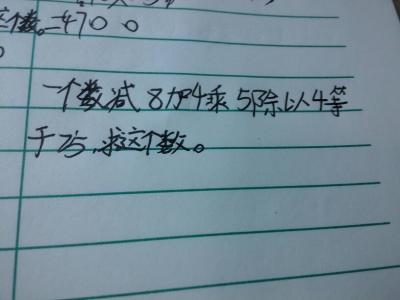 这个数。=470 0
一个数减8加4乘5除以4等
于25,求这个数。